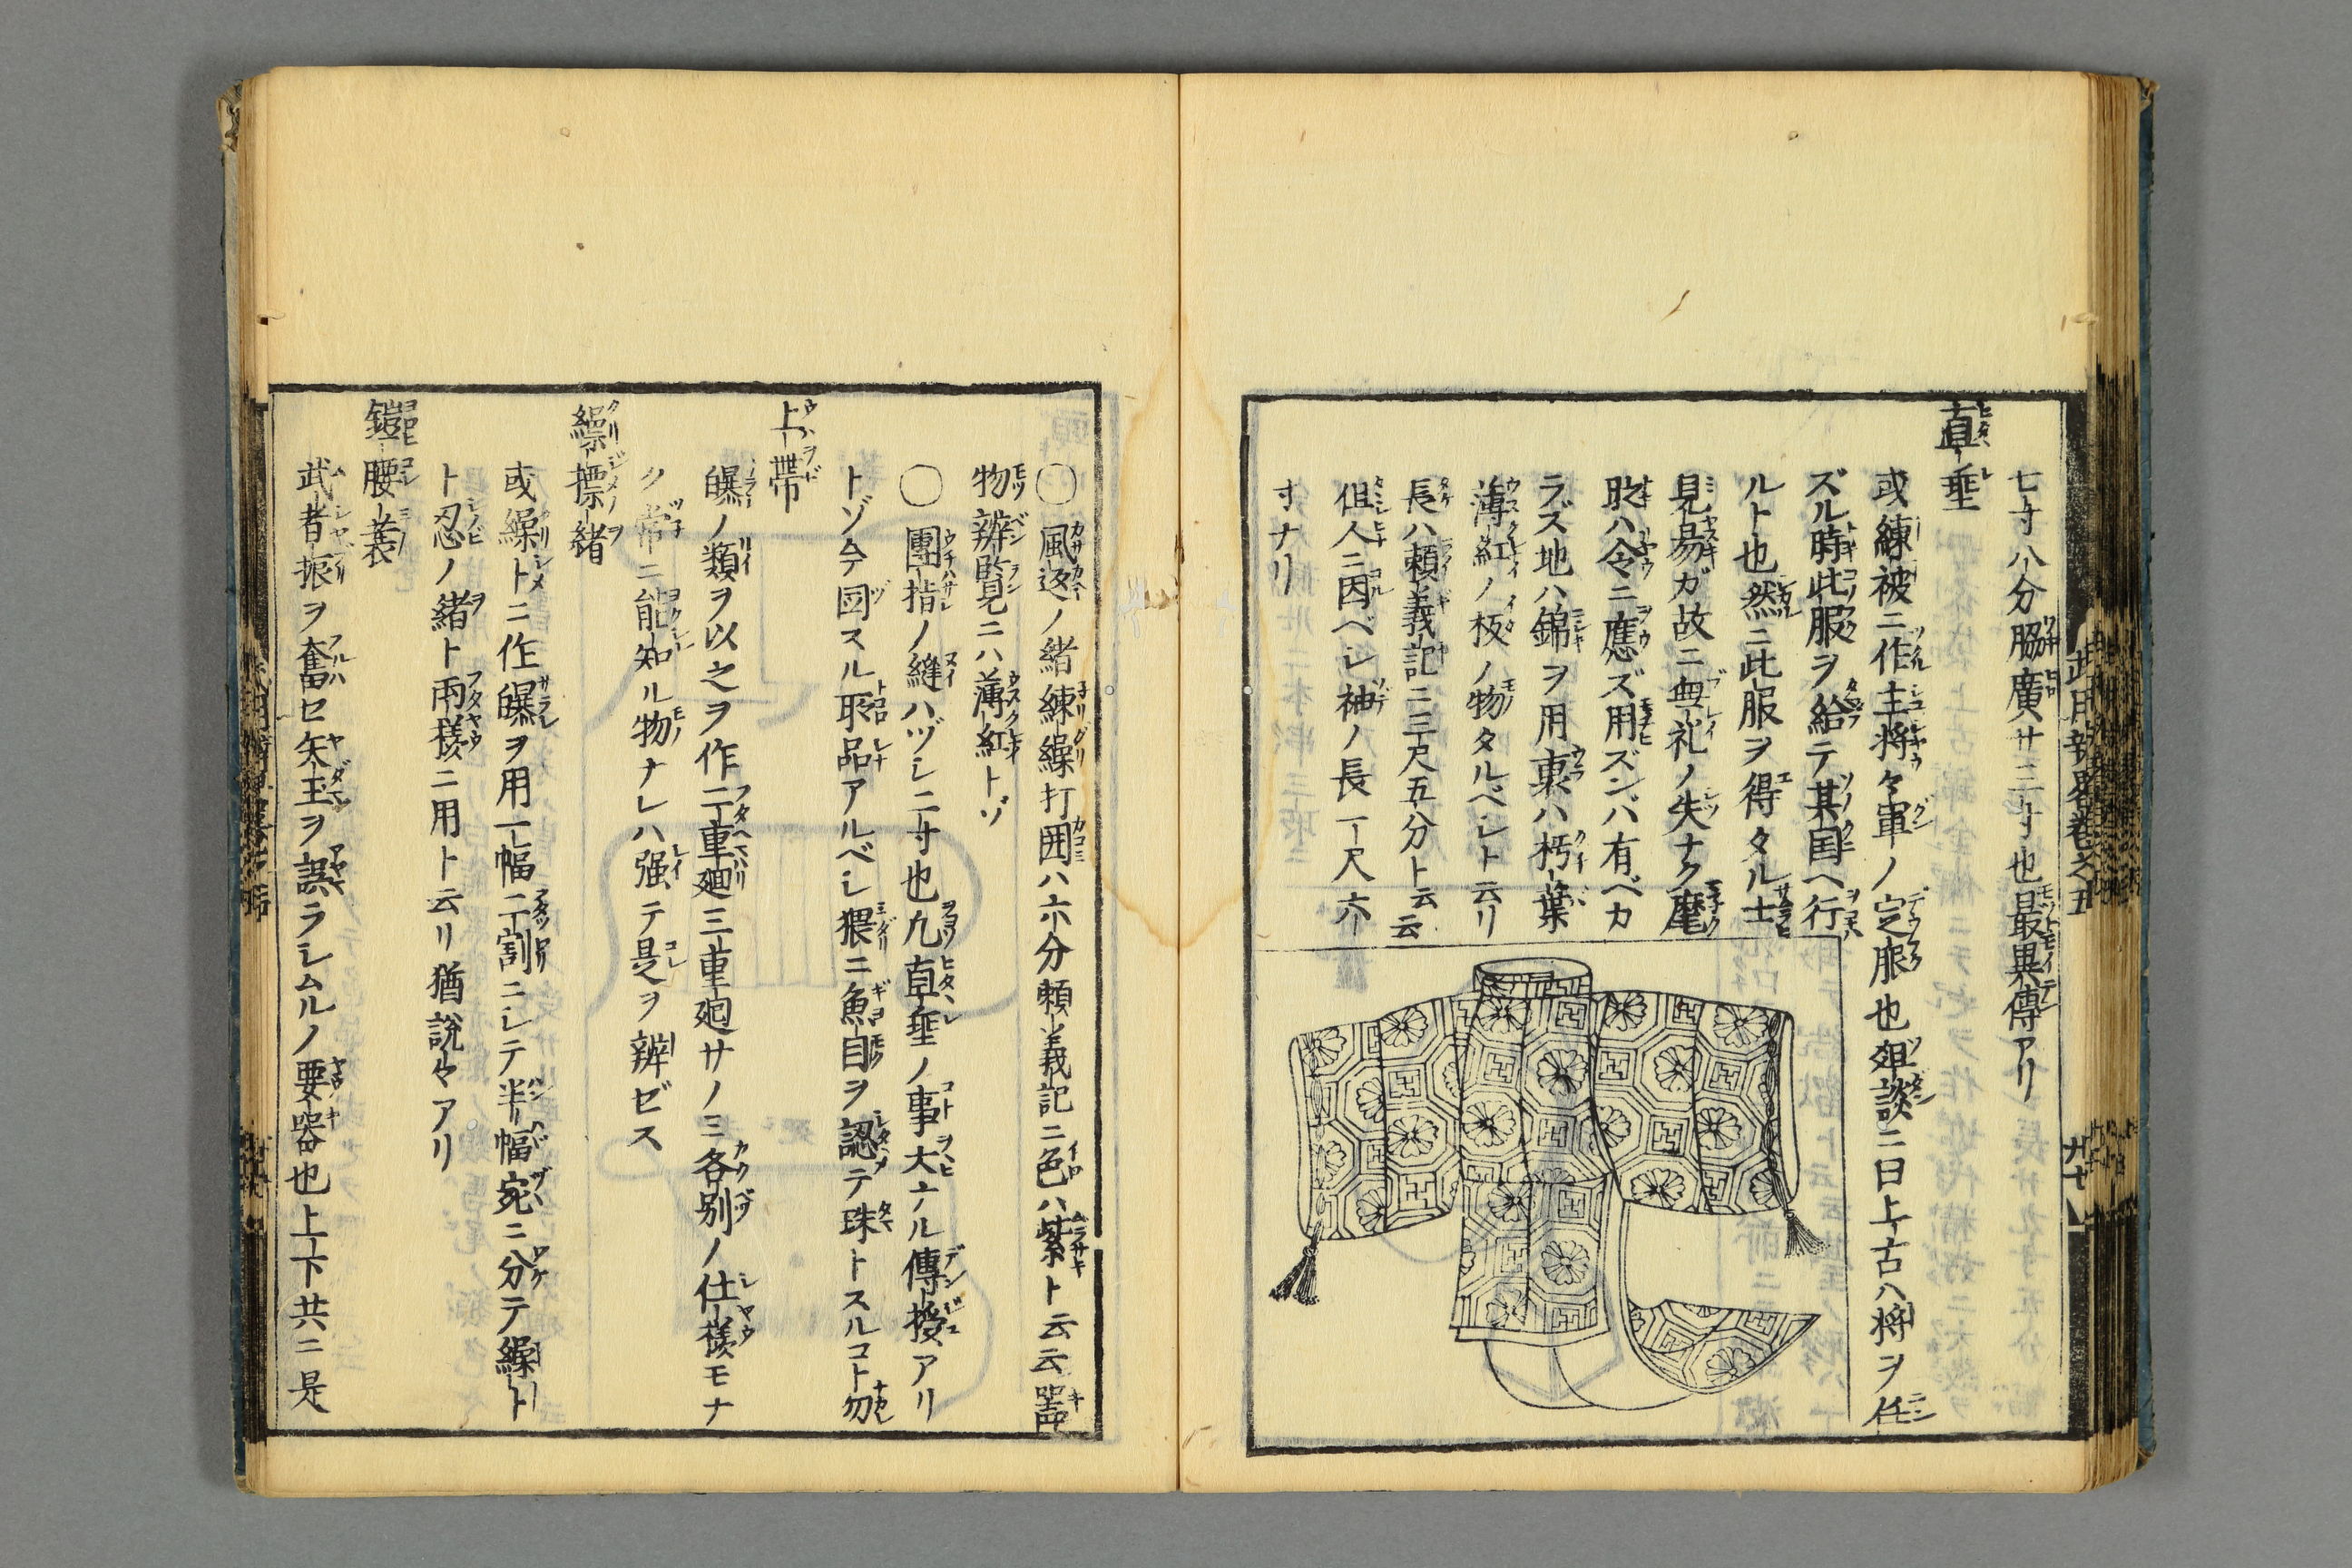 七寸八分脇廣サ二寸也最異傳アリ
直垂
或練被ニ作主將々軍ノ定服也爼談ニ曰上古ハ將ヲ任
ズル時此服ヲ給テ其国ヘ行
ルト也然ニ此服ヲ得タル士
見易ガ故ニ無礼ノ失ナク麾
眨ハ令ニ應ズ用ズンバ有ベカ
ラズ地ハ錦ヲ用裏ハ朽葉
薄紅ノ板ノ物タルベシト云リ
長ハ頼義記ニ三尺五分ト云云
但人ニ因ベシ袖ノ長一尺六
寸ナリ
武用辨畧巻之五
〇風返ノ緒練繰打囲ハ六分頼義記ニ色ハ紫ト云云噐
物辨覧ニハ薄紅トゾ
〇團指ノ縫ハヅシ二寸也凡直垂ノ事大ナル傳授アリ
トゾムテ図スル所品アルベシ猥ニ魚目ヲ認テ珠トスルコト勿
上帯
曝ノ類ヲ以之ヲ作二重廻三重廻サノミ各別ノ仕様モナ
ク常ニ能知ル物ナレハ强テ是ヲ辨ゼス
繰摽緒
或繰トニ作曝ヲ用一幅二割ニシテ半幅宛ニ分テ繰ト
ト忍ノ緒ト兩様ニ用ト云リ猶說々アリ
鎧腰蓑
武者振ヲ奮セ矢玉ヲ誤ラシムルノ要器也上下共ニ是